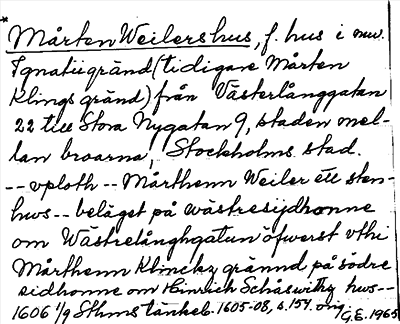 * Mårten Weilers hus, f. hus i nuv.
Ignatiigränd (tidigare Mårten
Klings gränd) från Västerlånggatan
22 till Stora Nygatan 9, staden mel-
lan broarna, Stockholms stad.
-- uploth -- Mårthenn Weiler ett sten-
hws -- beläget på wästresijdhonne
om Wästrelånghgatun öfwerst vthi
Mårthenn Klinckz grännd på södre
sidhonne om Hinrich Schåswithz hws --
1606 1/9 Sthms tänkeb. 1605-08, s. 154. orig.
G.E. 1965